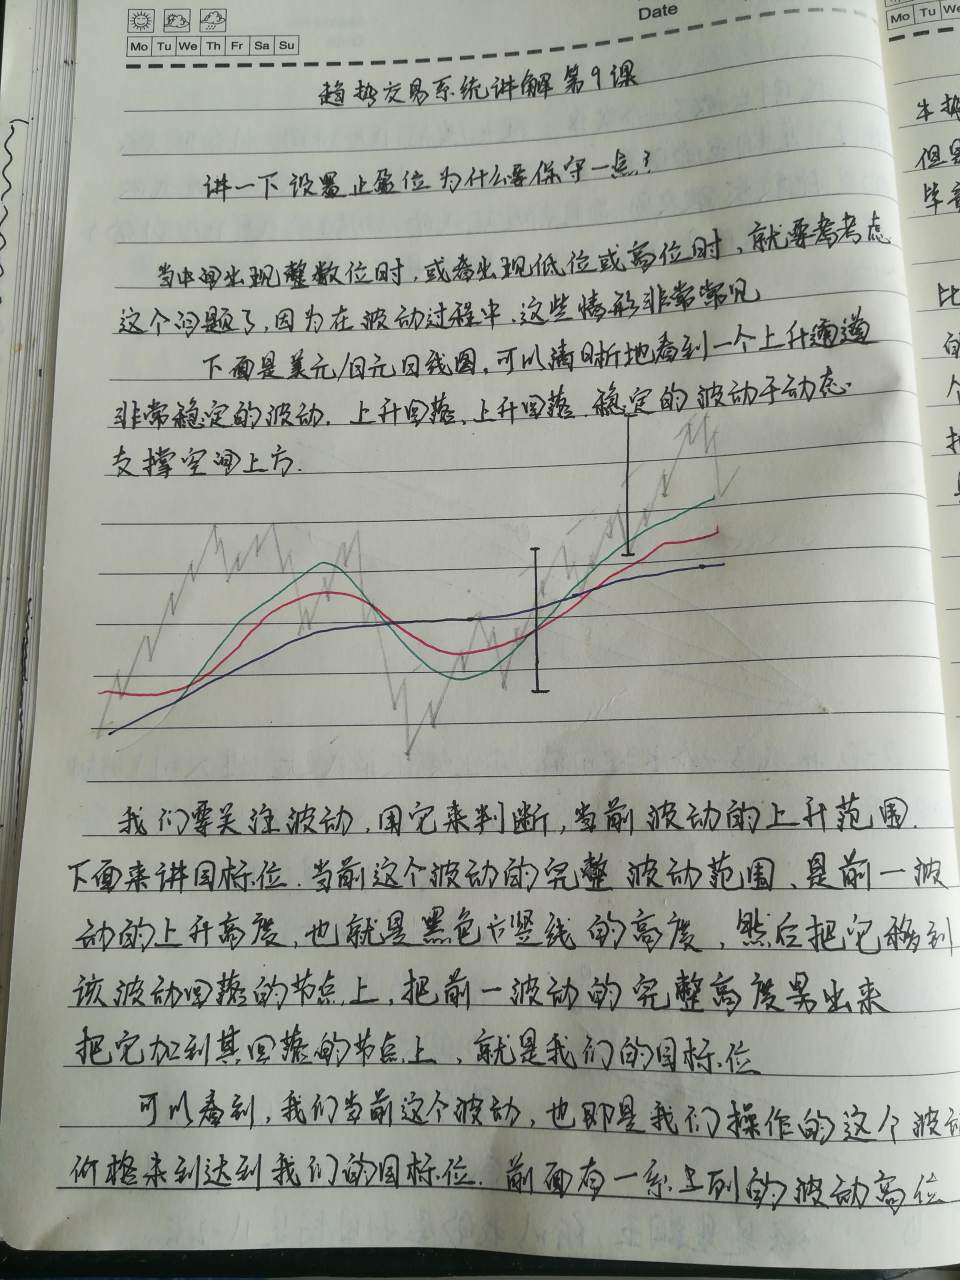 Date
Mo Tu We
Mo Tu We Th Fr Sa Su
趋势交易系统讲解 第9课
讲一下设置止盈位为什么要保守一点?
当中间出现整数位时,或者出现低位或高位时,就要考虑
这个问题了,因为在波动过程中,这些情形非常常见
下面是美元/日元日线图,可以清晰地看到一个上升通道
非常稳定的波动,上升回落,上升回落,稳定的波动于动态
支撑空间上方.
我们要关注波动,用它来判断,当前波动的上升范围.
下面来讲目标位.当前这个波动的完整波动范围、是前一波
动的上升高度,也就是黑色 竖线的高度,然后把它移到
该波动回落的节点上,把前一波动的完整高度 出来
把它加到其回落的节点上,就是我们的目标位
可以看到,我们当前这个波动,也即是我们操作的这个波动
价格来到达到我们的目标位.前面有一系列的波动高位
但
毕竟
比